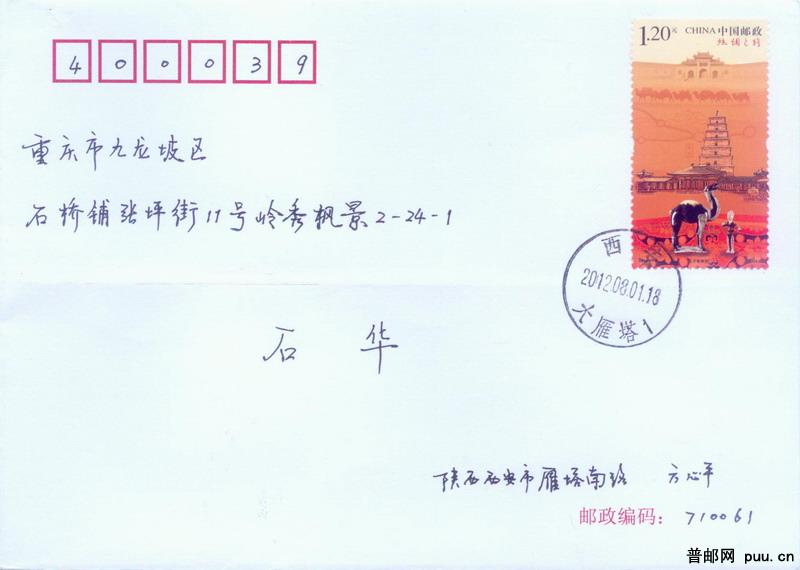 400039
1.20元 CHINA 中国邮政
丝绸之路
重庆市九龙坡区
石桥铺张坪街11号岭秀枫景2-24-1
西
2012.08.01.18
大雁塔1
石 华
陕西西安市雁塔南路 方心平
邮政编码: 710061
普邮网 puu.cn